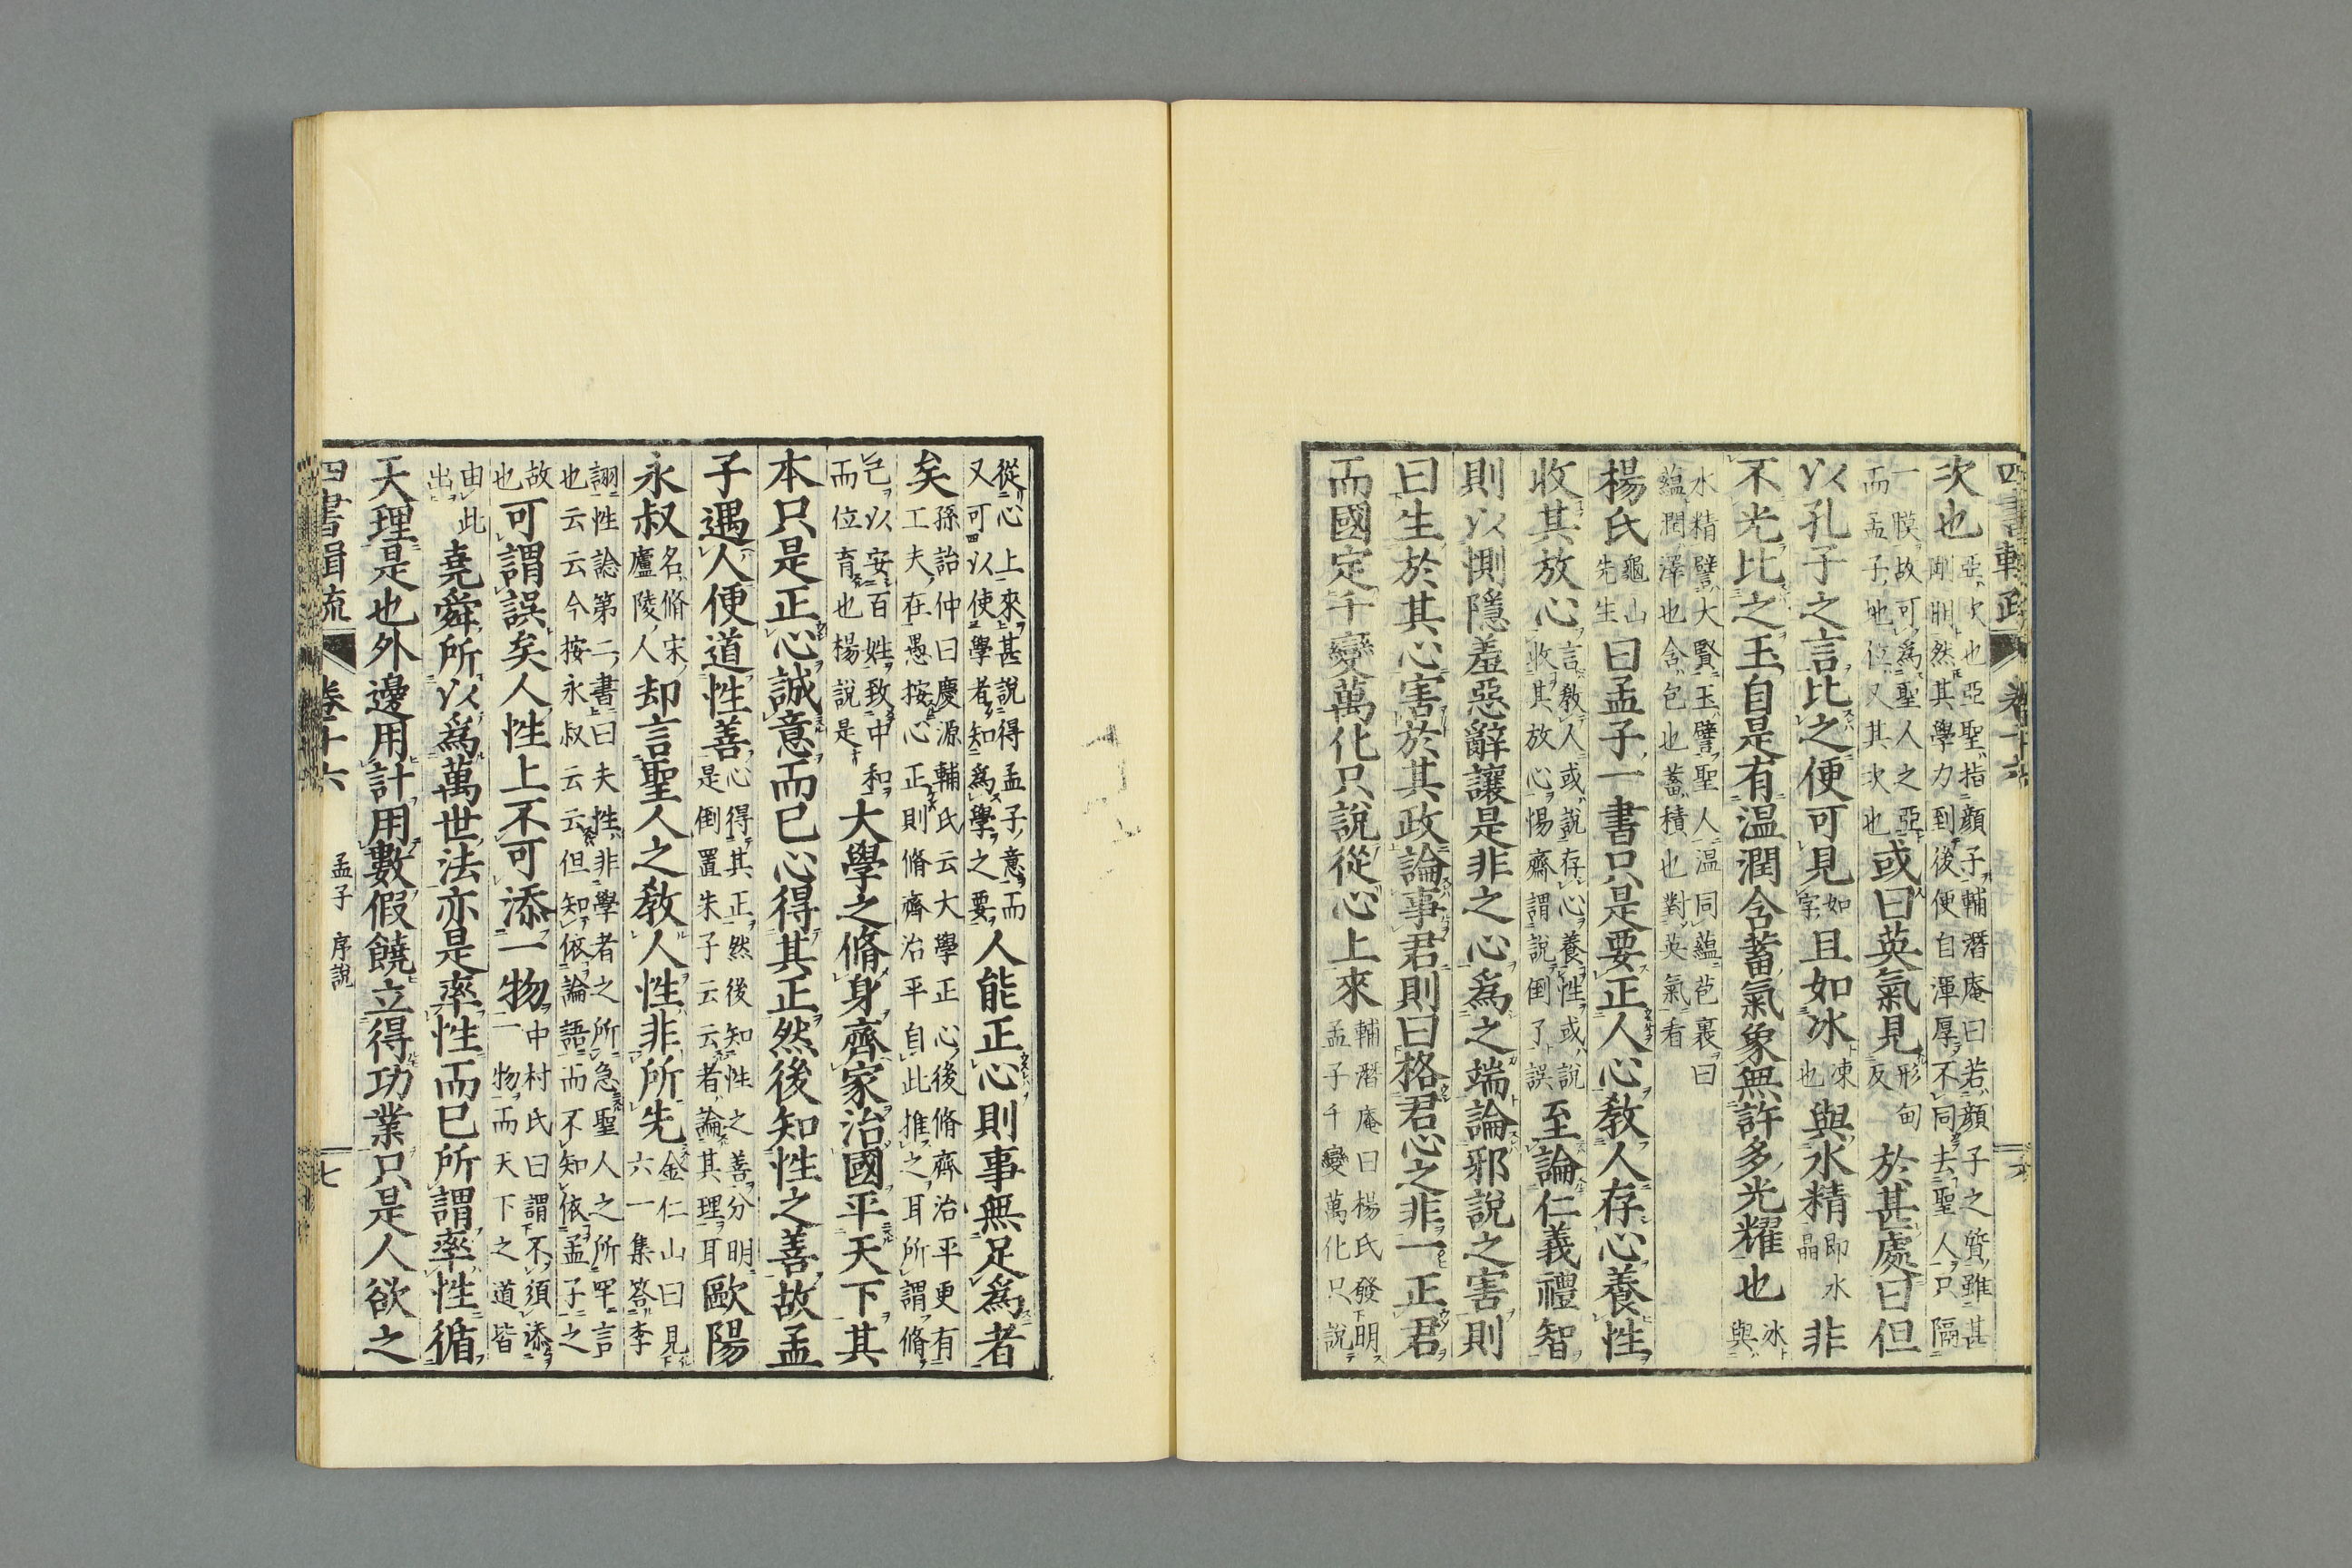 次也亞次也亞聖指顔子輔潛庵曰若顔子之質雖甚剛明然其學力到後便自渾厚不同去聖人只隔
一膜故可爲聖人之亞而孟子地位又其次也或曰英氣見形甸反於甚處曰但
以孔子之言比之便可見如字且如冰凍也與水精即水晶非
不光比之玉自是有温潤含蓄氣象無許多光耀也冰與
水精譬大賢玉譬聖人温同蘊苞裏曰蘊潤澤也含包也蓄積也對英氣看
楊氏龜山先生曰孟子一書只是要正人心教人存心養性
收其放心言教人或説存心養性或説收其放心惕齋謂説倒了誤至論仁義禮智
則以惻隱羞惡辭讓是非之心爲之端論邪説之害則
曰生於其心害於其政論事君則曰格君心之非一正君
而國定千變萬化只説從心上來輔潛庵曰楊氏發明孟子千變萬化只説
從心上來甚説得孟子意而又可以使學者知爲學之要人能正心則事無足爲者
矣孫詒仲曰慶源輔氏云大學正心後脩齊治平更有工夫在愚按心正則脩齊治平自此推之耳所謂脩
己以安百姓致中和而位育也楊説是大學之脩身齊家治國平天下其
本只是正心誠意而已心得其正然後知性之善故孟
子遇人便道性善心得其正然後知性之善分明是倒置朱子云云者論其理耳歐陽
永叔名脩宋廬陵人却言聖人之教人性非所先金仁山曰見六一集答李
詡性論第二書曰夫性非學者之所急聖人之所罕言也云云今按永叔云云但知依論語而不知依孟子之
故也可謂誤矣人性上不可添一物中村氏曰謂不須添一物而天下之道皆
由此出堯舜所以爲萬世法亦是率性而已所謂率性循
天理是也外邊用計用數假饒立得功業只是人欲之
四書輯疏 卷十六 孟子 序説 七